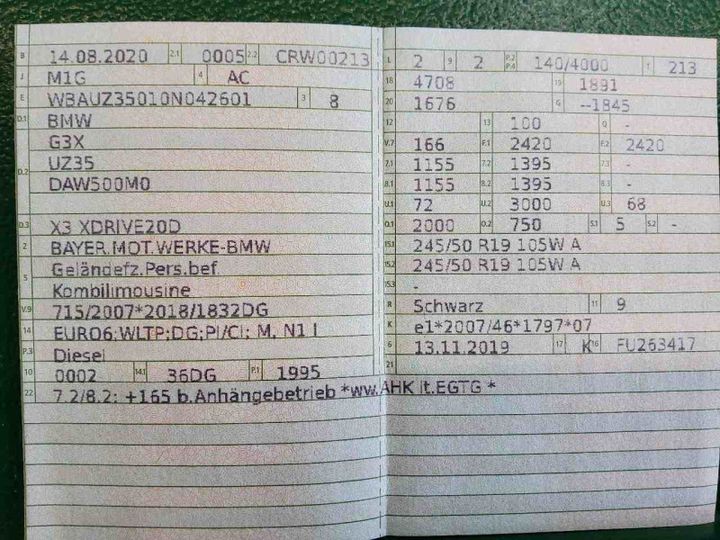 B 14.08.2020 2.1 0005 2.2 CRW00213
J M1G 4 AC
E WBAUZ35010N042601 3 8
D.1 BMW
D.2 G3X
UZ35
DAW500M0
D.3 X3 XDRIVE20D
2 BAYER.MOT.WERKE-BMW
5 Geländefz.Pers.bef
Kombilimousine
V.9 715/2007*2018/1832DG
14 EURO6;WLTP;DG;PI/CI; M, N1 I
P.3 Diesel
10 0002 14.1 36DG P.1 1995
22 7.2/8.2: +165 b.Anhängebetrieb *ww.AHK lt.EGTG *
L 2 9 2 P.2 P.4 140/4000 T 213
18 4708 19 1891
20 1676 G --1845
12 13 100 Q -
V.7 166 F.1 2420 F.2 2420
7.1 1155 7.2 1395 7.3 -
8.1 1155 8.2 1395 8.3 -
U.1 72 U.2 3000 U.3 68
O.1 2000 O.2 750 S.1 5 S.2 -
15.1 245/50 R19 105W A
15.2 245/50 R19 105W A
15.3 -
R Schwarz 11 9
K e1*2007/46*1797*07
6 13.11.2019 17 K 16 FU263417
21